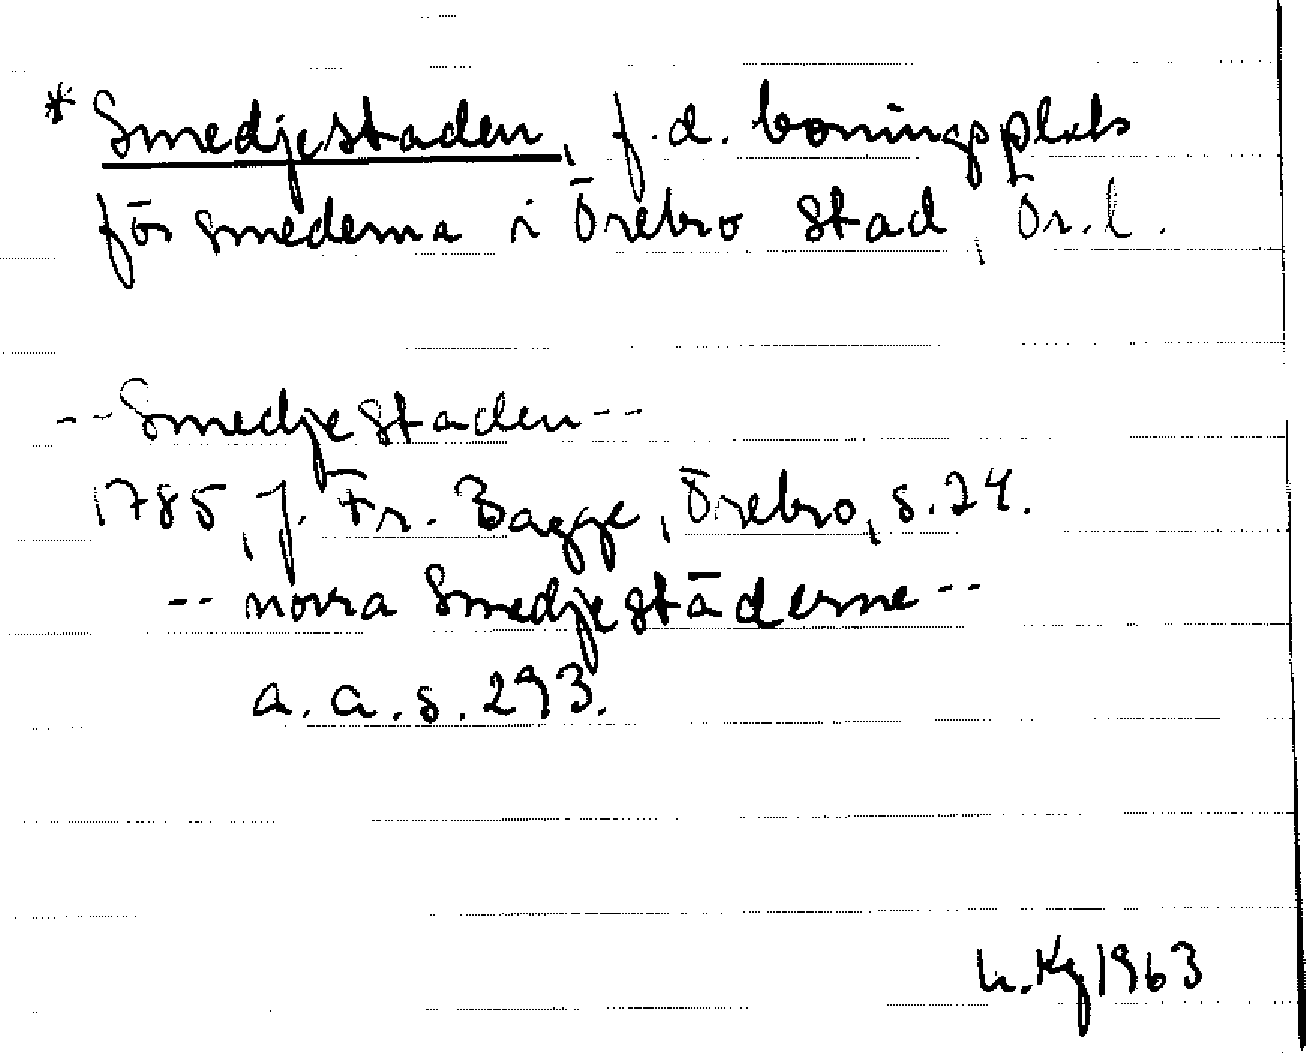 * Smedjestaden, f.d. boningsplats
för smederna i Örebro stad, Ör.l.
--Smedjestaden--
1785, J. Fr. Bagge, Örebro, s. 24.
-- norra Smedjestäderne --
a. a. s. 293.
h. Kg 1963